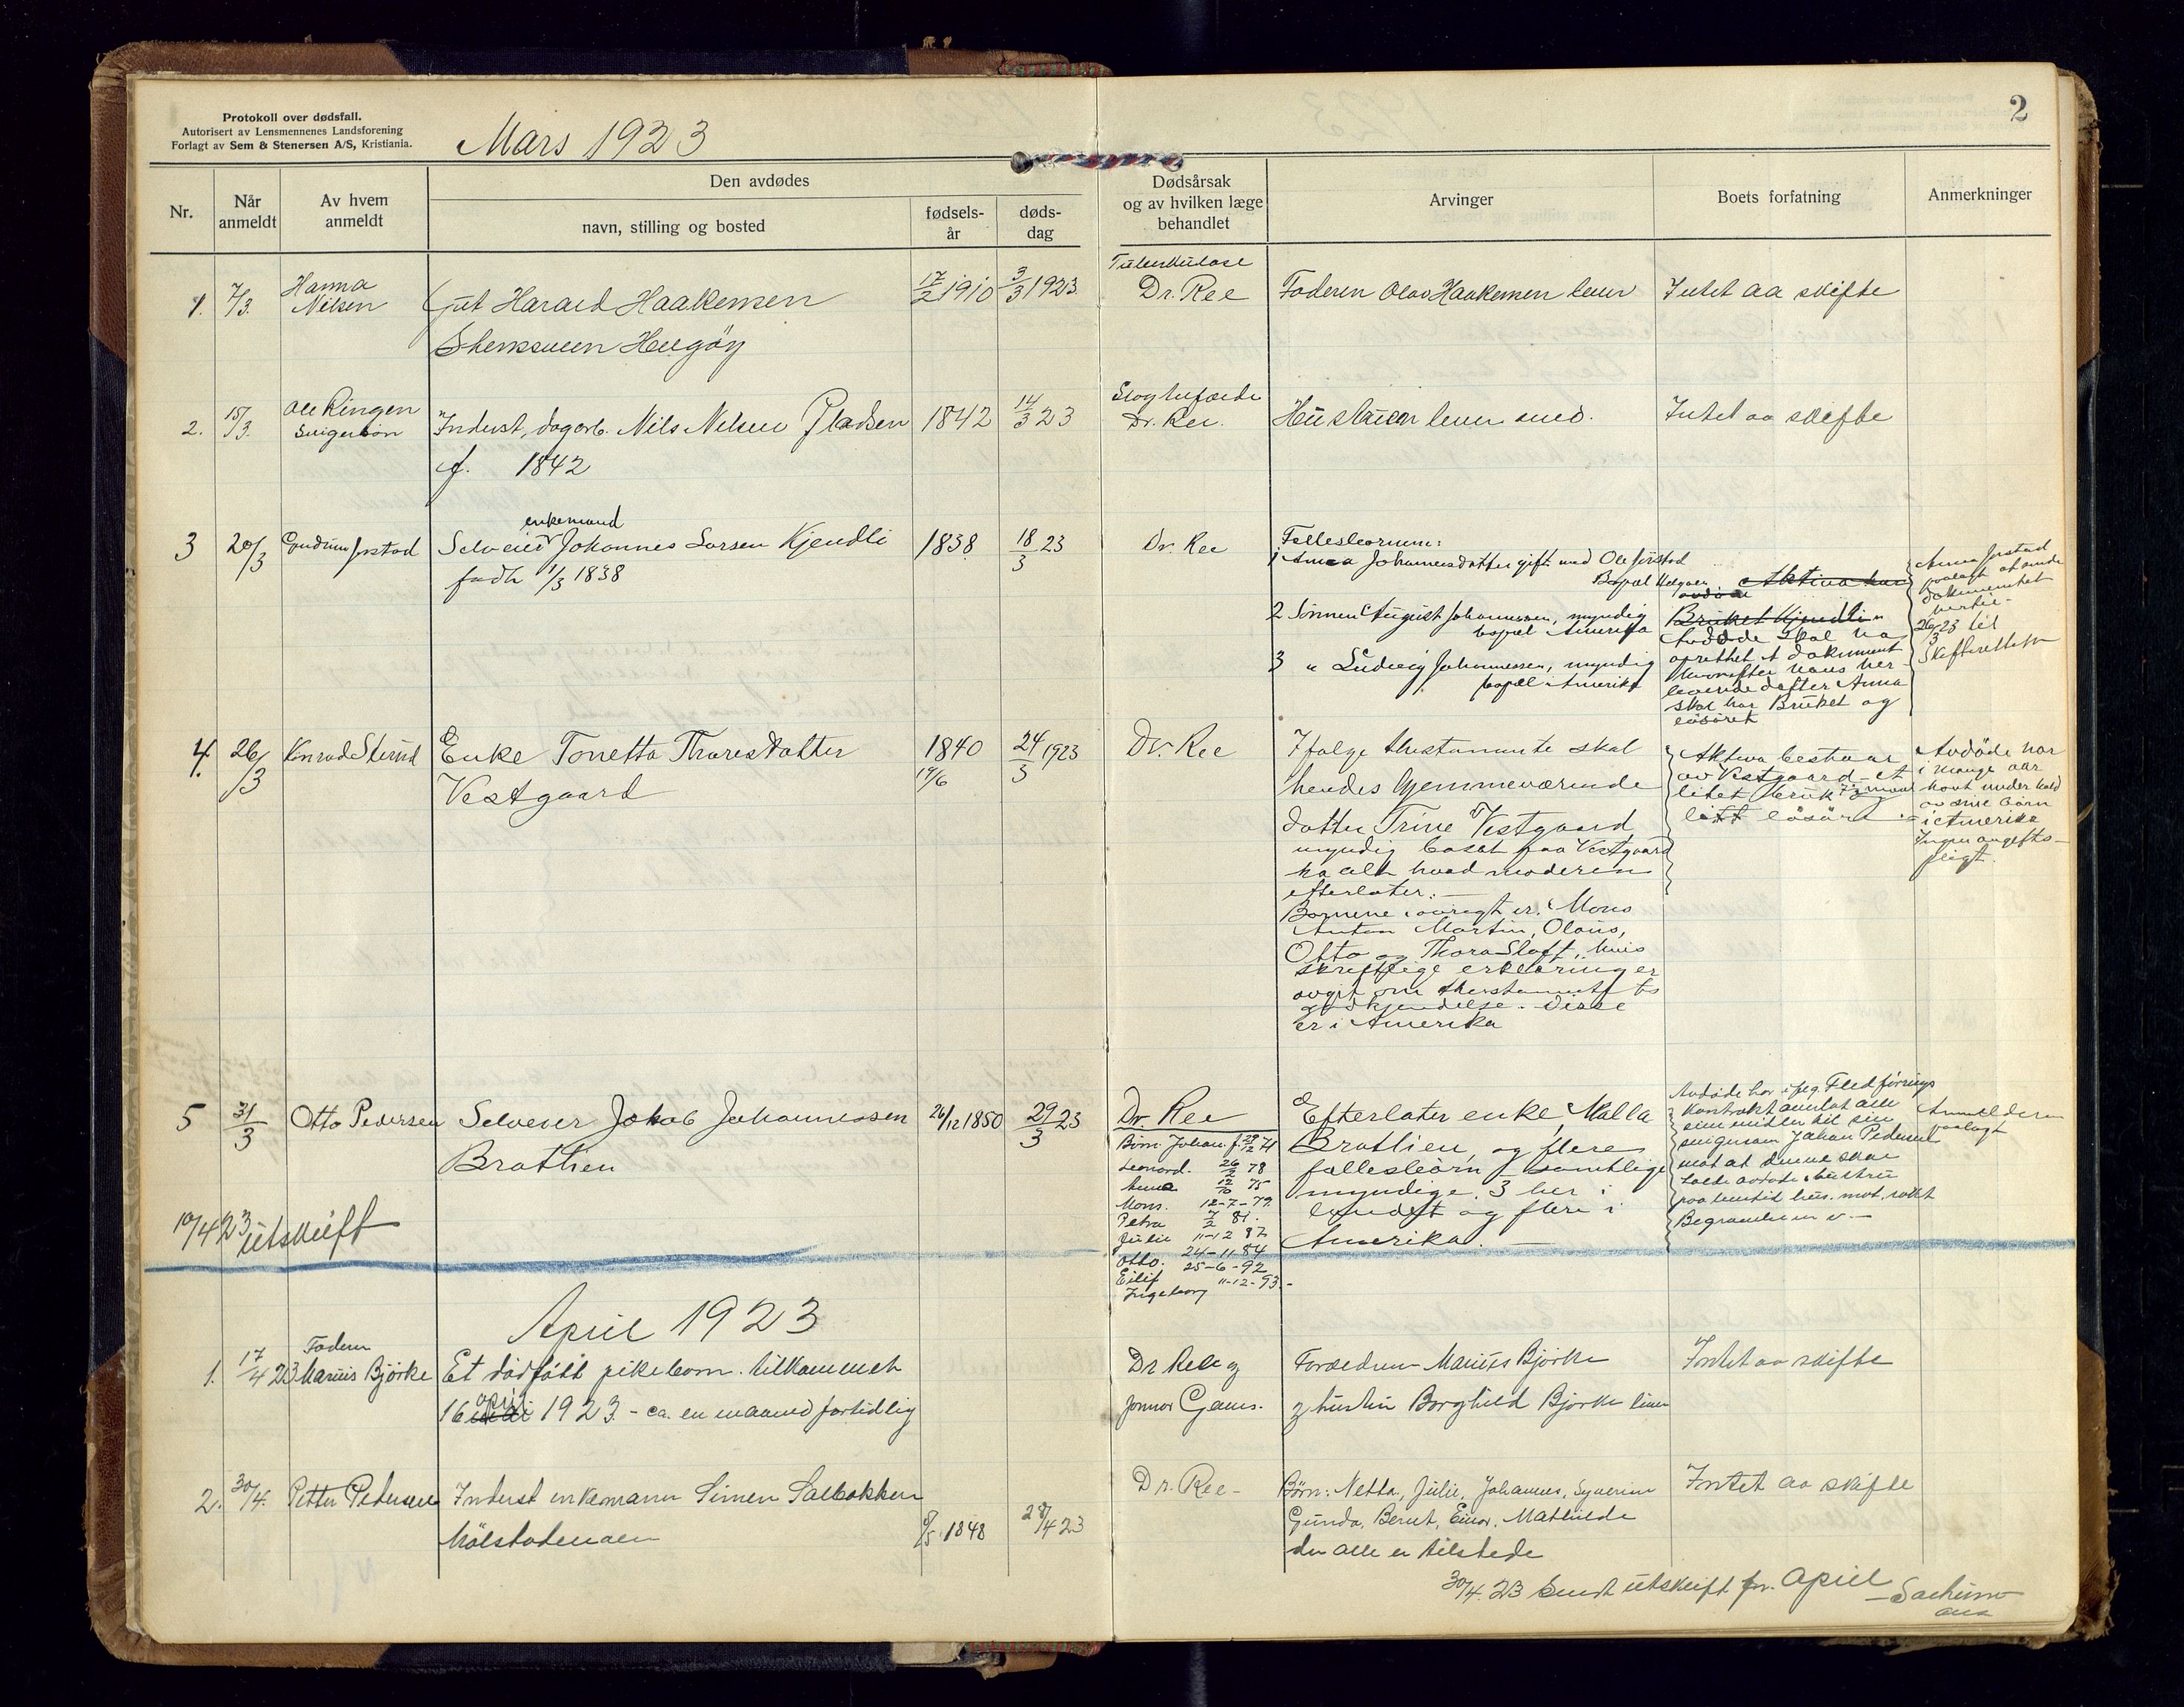 2
Protokoll over dødsfall.
Autorisert av Lensmennenes Landsforening
Forlagt av Sem & Stenersen A/S, Kristiania.
Mars 1923
Nr.
Når anmeldt
Av hvem anmeldt
Den avdødes
navn, stilling og bosted
fødsels-år
døds-dag
Dødsårsak
og av hvilken læge
behandlet
Arvinger
Boets forfatning
Anmerkninger
1. 7/3. Hanna Nilsen
Gut Harald Haakensen
17/2 1910 3/3 1923
Tuberkulose
Dr. Ree
Faderen Olav Haakensen lever
Intet aa skifte
2. 15/3. Ole Ringen
Svigersøn
Inderst, dagarb. Nils Nilsen Pladsen
f. 1842
1842 14/3 23
Dr. Ree.
Hustruen lever
Intet aa skifte
3 20/3 Jørstad
enkemand
Selveier Johannes Larsen Kjendli
født 1/3 1838
1838 18/3 23
Dr. Ree
Fellesbørnene:
1 Anna Johannesdatter gift med Ole Jørstad
2 Sønnen August Johannessen, myndig
bopæl Amerika
3 " Ludvig Johannessen, myndig
bopæl Amerika
Bruket Kjendli
Avdøde skal ha
oprettet et dokument
hvorefter hans her-
levende datter Anna
skal ha Bruket og
løsøret
Anna Jørstad
paalagt at sende
dokumentet
hertil.
26/3 23 til
Skifteretten
4. 26/3 Konrad
Enke Tonetta Thoresdatter
Vestgaard
1840 24/3 1923
19/6
Dr. Ree
Ifølge thestamente skal
hendes hjemmeværende
datter Trine Vestgaard
myndig bosat paa Vestgaard
ha alt hvad moderen
efterlater. —
Børnene i øvrigt er: Mons
Anton Martin, Olaus,
Otto og Thora, hvis
skriftlige erklæringer
avgit om thestamentets
godkjendelse. Disse
er i Amerika
Aktiva bestaar
av Vestgaard - et
litet bruk
litt løsøre
Avdøde har
i mange aar
havt underhold
av sine børn
i Amerika
Ingen avgifts-
pligt.
5 31/3 Otto Pedersen
Selveier Jakob Johannessen
Brathen
26/12 1850 29/3 23
Dr. Ree
Børn: Johan f. 29/12 71
Leonard. 78
Anna 75
Mons. 12-7-79
Petra 7/2 81.
Julie 11-12 82
Otto. 24-11-84
Eilif 25-6-92
Ingeborg 11-12-93.-
Efterlater enke, Malla
Brathen, og flere
fællesbørn - samtlige
myndige. 3 her i
landet og flere i
Amerika. —
Kontrakt overlat alle
sine midler til sin
svigersøn Johan Pedersen
mot at denne skal
Anmelderen
paalagt
10/4 23 utskrift
April 1923
1. 17/4 23 Faderen
Marius Bjørke
Et dødfødt pikebarn. tilkommet
16 mai april 1923. - ca. en maaned fortidlig
Dr Ree og
jormor Gams.
Forældrene Marius Bjørke
og hustru Borghild Bjørke lever
Intet aa skifte
2. 30/4. Petter Pedersen
Inderst enkemann Simen Salbakken
1848 28/4 23
Dr. Ree -
Børn: Netta, Julie, Johannes, Syverin
Gunda, Bernt, Einar, Mathilde
der alle er tilstede
Intet aa skifte
30/4. 23 sendt utskrift for April